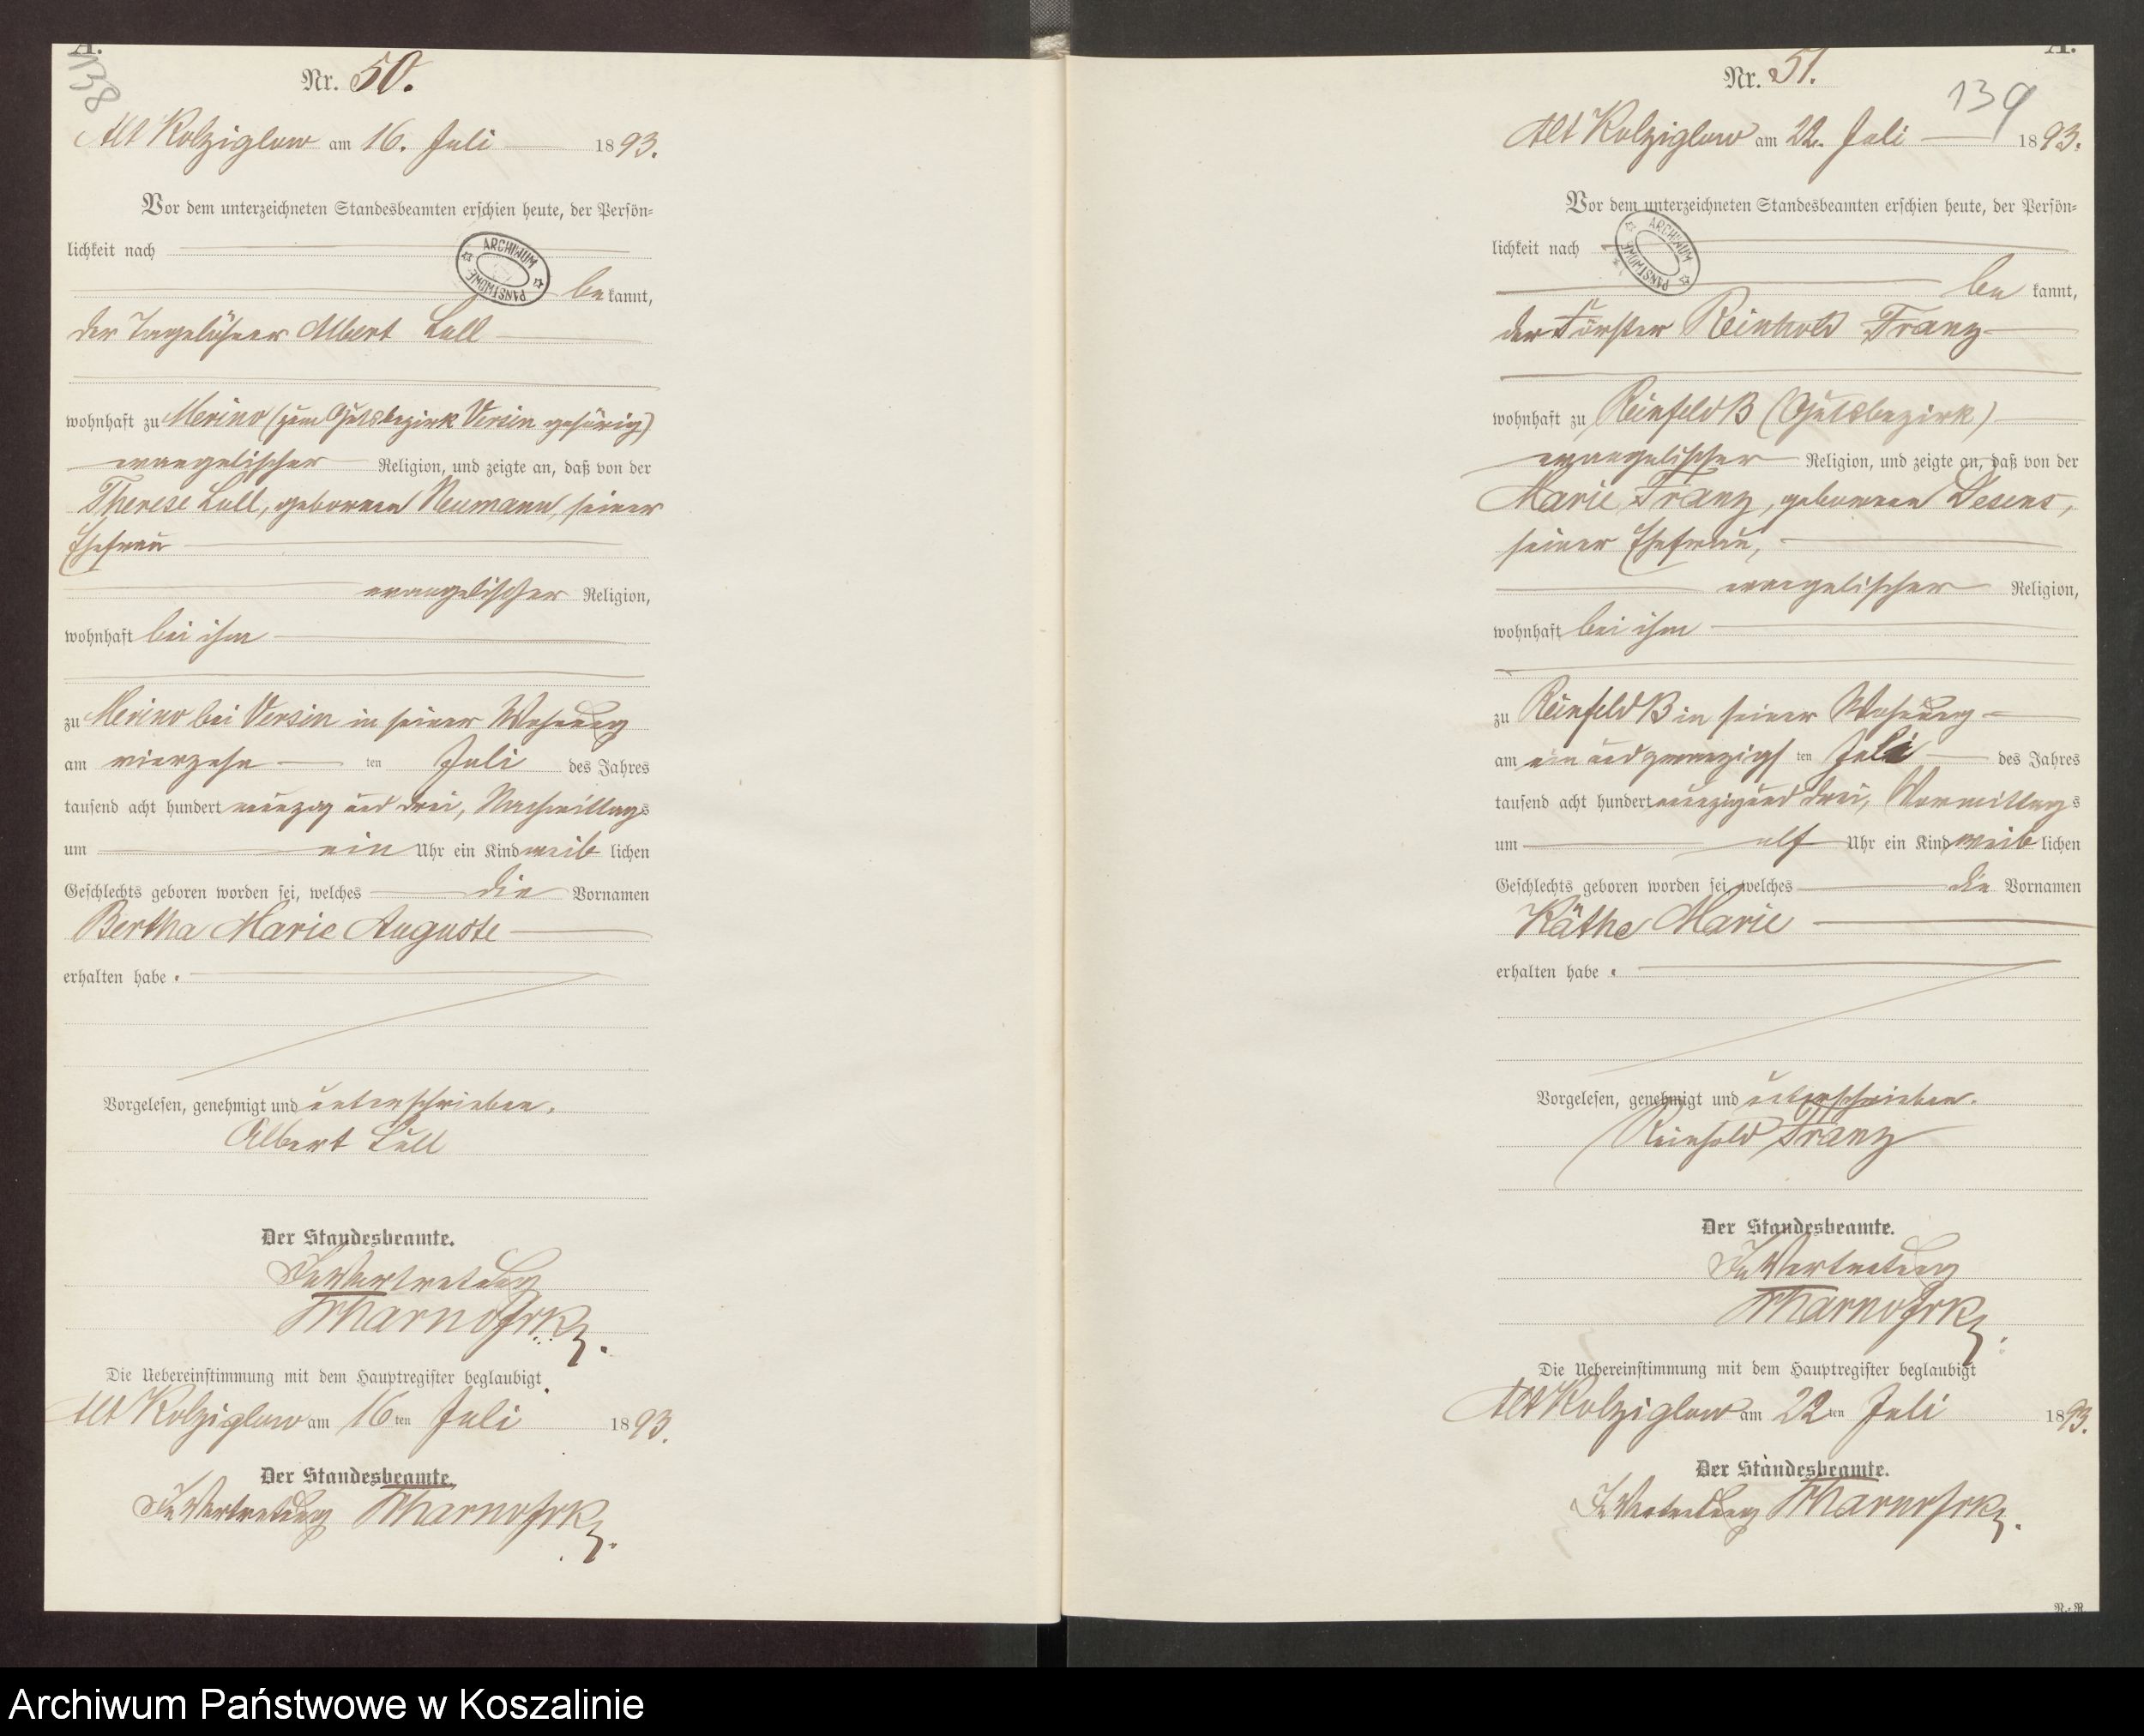 A.
138
Nr. 50.
Alt Kolziglow am 16. Juli 1893.
Vor dem unterzeichneten Standesbeamten erschien heute, der Persön-
lichkeit nach
bekannt,
der Tagelöhner Albert Lull
wohnhaft zu Merino (zum Gutsbezirk Versin gehörig)
evangelischer Religion, und zeigte an, daß von der
Therese Lull, geborenen Neumann, seiner
Ehefrau
evangelischer Religion,
wohnhaft bei ihm
zu Merino bei Versin in seiner Wohnung
am vierzehn ten Juli des Jahres
tausend acht hundert neunzig und drei, Nachmittags
um ein Uhr ein Kind weiblichen
Geschlechts geboren worden sei, welches die Vornamen
Bertha Marie Auguste
erhalten habe.
Vorgelesen, genehmigt und unterschrieben.
Albert Lull
Der Standesbeamte.
In Vertretung
Die Uebereinstimmung mit dem Hauptregister beglaubigt
Alt Kolziglow am 16ten Juli 1893.
Der Standesbeamte.
In Vertretung
ARCHIWUM PAŃSTWOWE
A.
139
Nr. 51.
Alt Kolziglow am 22. Juli 1893.
Vor dem unterzeichneten Standesbeamten erschien heute, der Persön-
lichkeit nach
be kannt,
der Förster Reinhold Franz
wohnhaft zu Reinfeld B (Gutsbezirk)
evangelischer Religion, und zeigte an, daß von der
Marie Franz, geborenen Desens,
seiner Ehefrau,
evangelischer Religion,
wohnhaft bei ihm
zu Reinfeld B in seiner Wohnung
am ein und zwanzigs ten Juli des Jahres
tausend acht hundert neunzig und drei, Vormittags
um elf Uhr ein Kind weiblichen
Geschlechts geboren worden sei, welches die Vornamen
Käthe Marie
erhalten habe.
Vorgelesen, genehmigt und unterschrieben.
Reinhold Franz
Der Standesbeamte.
In Vertretung
Die Uebereinstimmung mit dem Hauptregister beglaubigt
Alt Kolziglow am 22ten Juli 1893.
Der Standesbeamte.
In Vertretung
ARCHIWUM PAŃSTWOWE
Archiwum Państwowe w Koszalinie